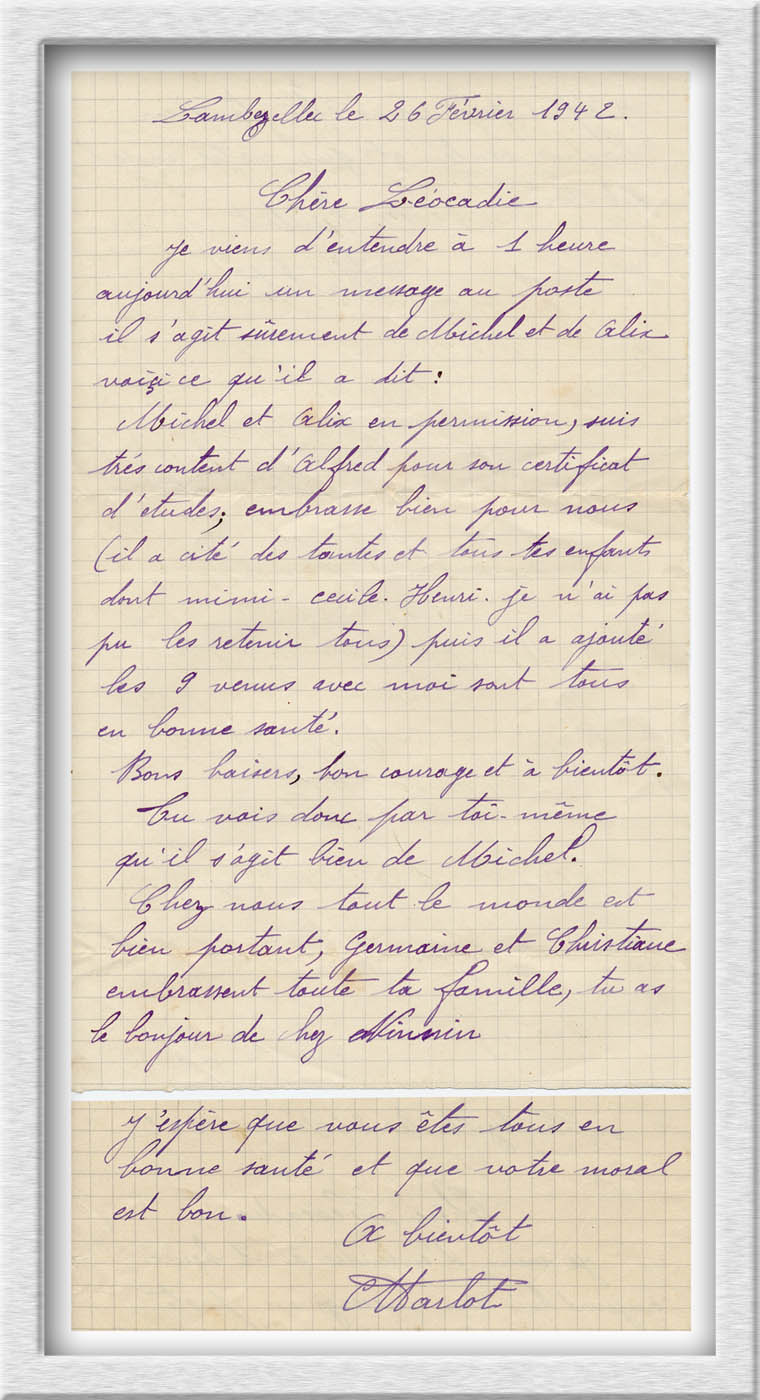 Lambezellec le 26 Février 1942.
Chère Léocadie
Je viens d'entendre à 1 heure
aujourd'hui un message au poste
il s'agit sûrement de Michel et de Alix
voiçi ce qu'il a dit :
Michel et Alix en permission, suis
trés content d'Alfred pour son certificat
d'etudes; embrasse bien pour nous
(il a cité des tantes et tous tes enfants
dont mimi - cecile. Henri. je n'ai pas
pu les retenir tous) puis il a ajouté
les 9 venus avec moi sont tous
en bonne santé.
Bons baisers, bon courage et à bientôt.
Tu vois donc par toi-même
qu'il s'agit bien de Michel.
Chez nous tout le monde est
bien portant, Germaine et Christiane
embrassent toute ta famille, tu as
le bonjour de chez
J'espère que vous êtes tous en
bonne santé et que votre moral
est bon.
A bientôt